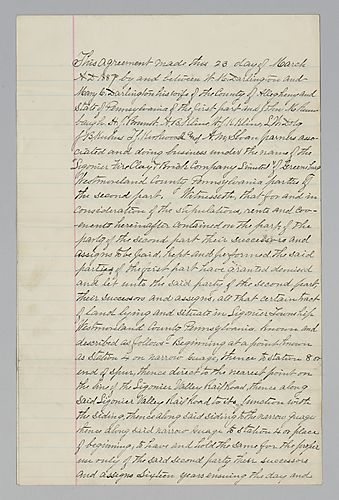 This agreement made this 23 day of March
A.D. 1887 by and between W. M. Darlington and
Mary C. Darlington his wife of the County of Allegheny and
State of Pennsylvania of the first part and John M.
H. B.
and H. M. Sloan partners asso-
ciated and doing business under the name of the
Ligonier Fire Clay & Brick Company Limited of
Westmoreland County Pennsylvania parties of
the second part. Witnesseth, that for and in
consideration of the stipulations, rents and cov-
enents hereinafter contained on the part of the
party of the second part their successors and
assigns to be paid, kept and performed the said
parties of the first part have granted demised
and let unto the said party of the second part
their successors and assigns, all that certain tract
of land lying and situate in Ligonier Township
Westmoreland County Pennsylvania, known and
described as follows - Beginning at a point known
as Station 4 on narrow guage, thence to Station 8 or
end of spur, thence direct to the nearest point on
the line of the Ligonier Valley Rail Road, thence along
said Ligonier Valley Rail Road to its junction with
the Siding, thence along said siding to the narrow guage
thence along said narrow guage to Station 4 or place
of beginning, to have and hold the same for the proper
use only of the said second party their successors
and assigns Sixteen years ensuing the day and